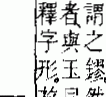 謂之鏐
者與玉
釋字形